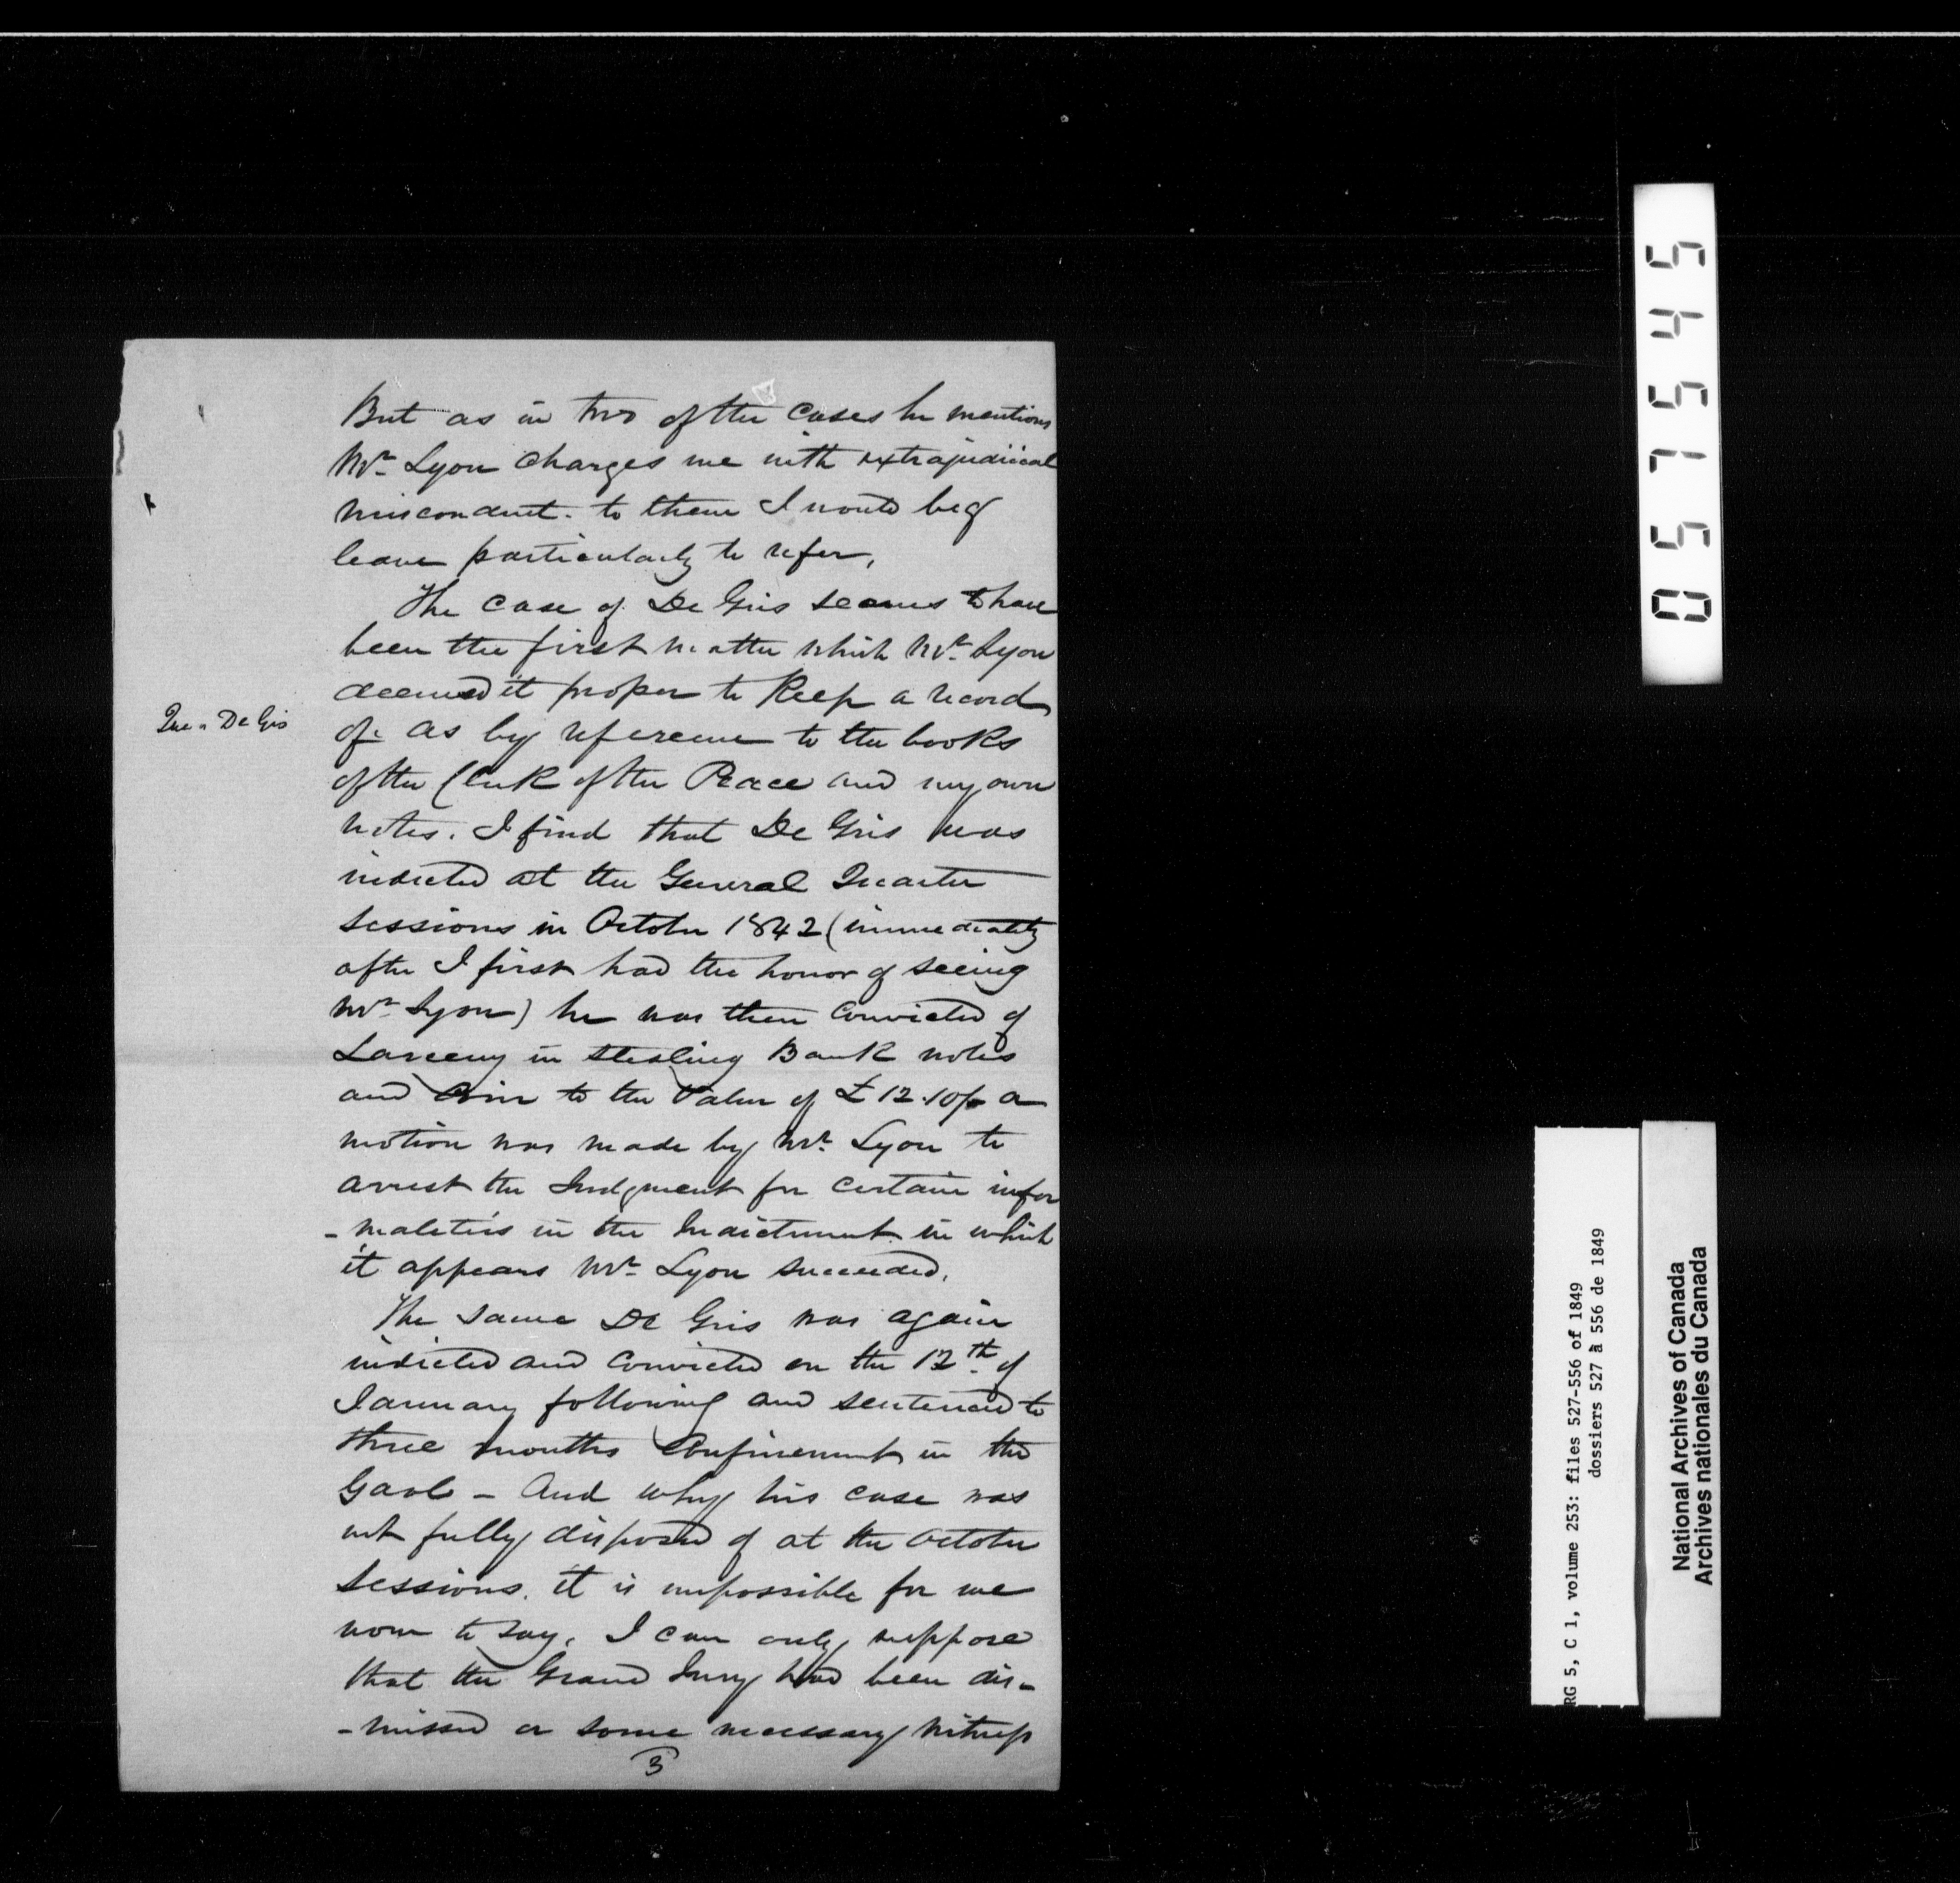 But as in two of the cases he mentions
Mr. Lyon charges me with extrajudicial
misconduct. to them I would beg
leave particularly to refer,
The case of De Gris seems to have
been the first matter which Mr. Lyon
deemed it proper to keep a record
Que. De Gris
of. as by reference to the books
of the Clerk of the Peace and my own
notes. I find that De Gris was
indicted at the General Quarter
Sessions in October 1842 (immediately
after I first had the honor of seeing
Mr. Lyon) he was then convicted of
Larceny in stealing Bank notes
and Coin to the value of £12.10/- a
motion was made by Mr. Lyon to
arrest the Judgment for certain infor
-maleties in the Indictment in which
it appears Mr. Lyon succeeded.
The same De Gris was again
indicted and convicted on the 12th. of
January following and sentenced to
three months confinement in the
Gaol - And why his case was
not fully disposed of at the October
Sessions. it is impossible for me
now to say. I can only suppose
that the Grand Jury had been dis-
-missed or some necessary witness
3
057545
RG 5, C 1, volume 253: files 527-556 of 1849
dossiers 527 à 556 de 1849
National Archives of Canada
Archives nationales du Canada